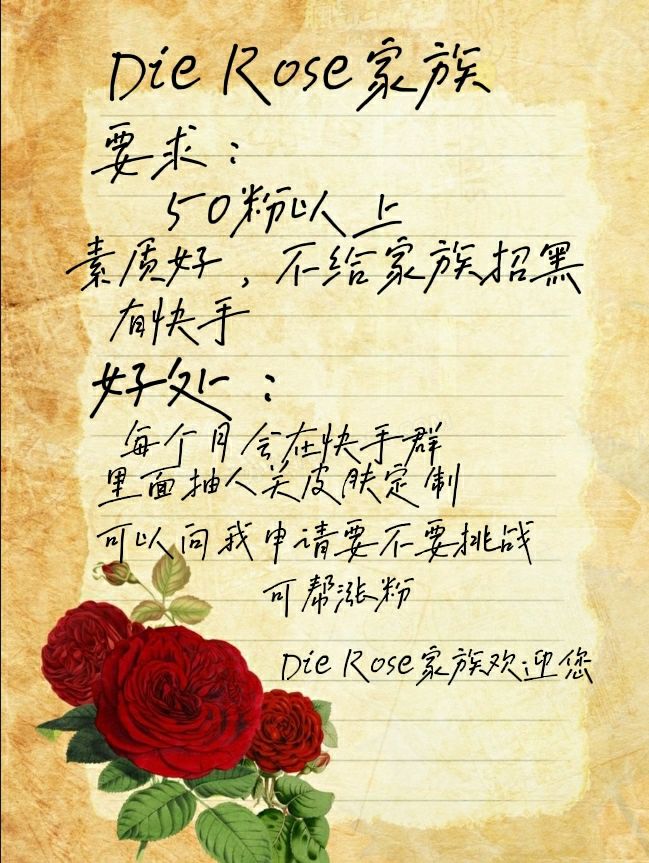 Die Rose家族
要求：
50粉以上
素质好，不给家族招黑
有快手
好处：
每个月会在快手群
里面抽人关皮肤定制
可以向我申请要不要挑战
可帮涨粉
Die Rose家族欢迎您